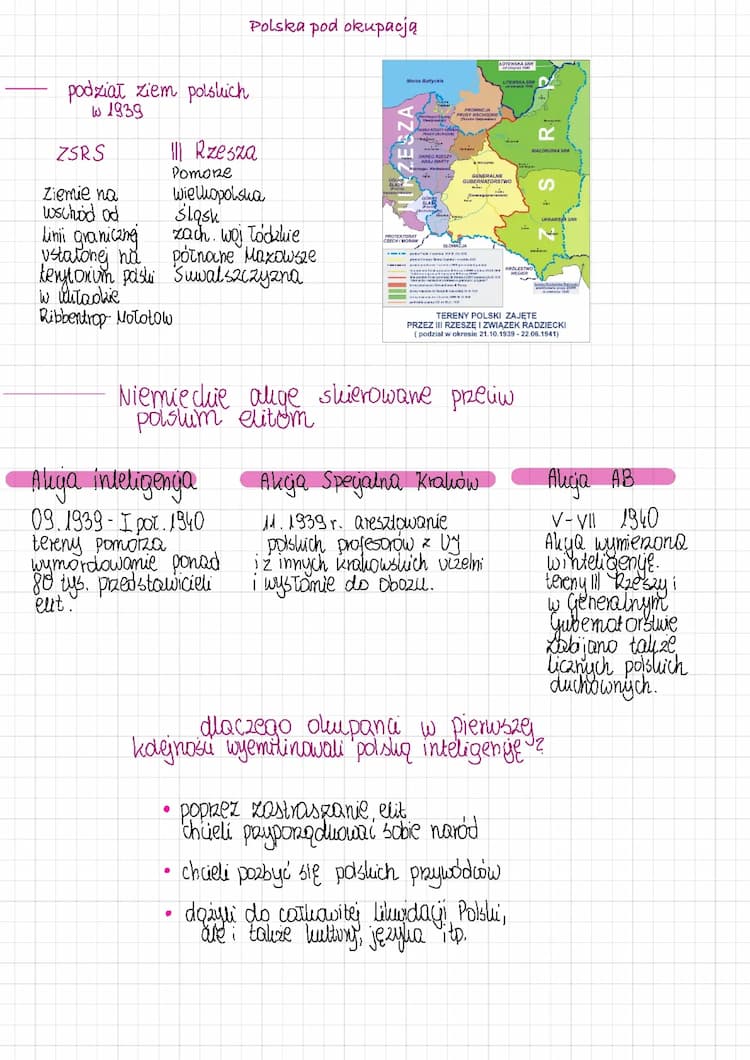 Polska pod okupacją
podział ziem polskich
w 1939
ZSRS
Ziemie na
wschód od
linii granicznej
ustalonej na
terytorium polski
w układzie
Ribbentrop-Mołotow
III Rzesza
Pomorze
wielkopolska
śląsk
zach. woj Łódzkie
północne Mazowsze
Suwalszczyzna
Morze Bałtyckie
III RZESZA
Z S R R
LITEWSKA SRR
PROWINCJA
PRUSY WSCHODNIE
BIAŁORUSKA SRR
OKRĘG RZESZY
KRAJ WARTY
GENERALNE
GUBERNATORSTWO
UKRAIŃSKA SRR
PROTEKTORAT
CZECH I MORAW
SŁOWACJA
KRÓLESTWO
WĘGIER
TERENY POLSKI ZAJĘTE
PRZEZ III RZESZĘ I ZWIĄZEK RADZIECKI
( podział w okresie 21.10.1939 - 22.06.1941)
Niemieckie akcje skierowane przeciw
polskim elitom
Akcja inteligencja
09.1939 - I poł. 1940
tereny pomorza
wymordowanie ponad
80 tys. przedstawicieli
elit.
Akcja Specjalna Kraków
11.1939 r. aresztowanie
polskich profesorów z UJ
i z innych krakowskich uczelni
i wysłanie do obozu.
Akcja AB
V-VII 1940
Akcja wymierzona
w inteligencję.
tereny III Rzeszy i
w Generalnym
Gubernatorstwie
zabijano także
licznych polskich
duchownych.
dlaczego okupanci w pierwszej
kolejności wyemilinowali polską inteligencję?
• poprzez zastraszanie elit
chcieli przyporządkować sobie naród
• chcieli pozbyć się polskich przywódców
• dążyli do całkowitej likwidacji Polski,
ale i także kultury, języka itp.